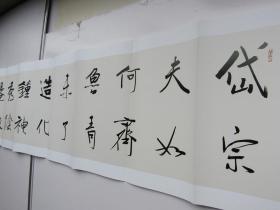 岱宗
夫如
何齊
魯青
未了
造化
鍾神
秀陰